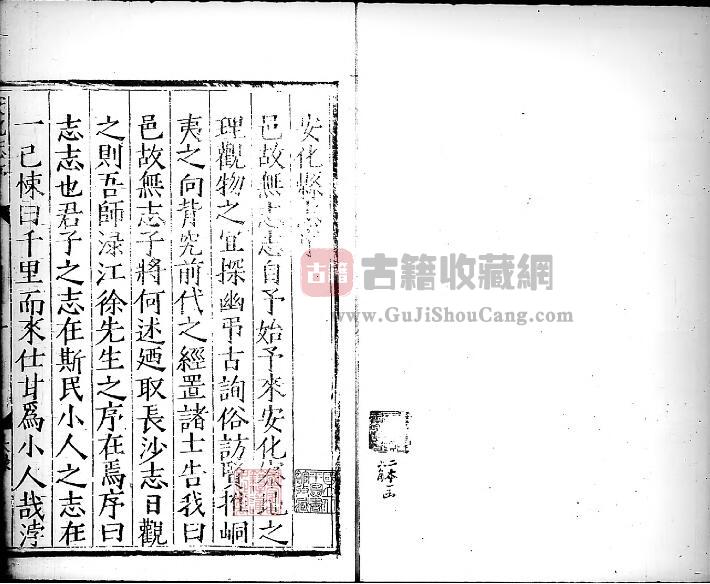 安化縣志序
邑故無志志自予始予來安化察民之
理觀物之宜探幽弔古詢俗訪賢推峒
夷之向背究前代之經置諸士告我曰
邑故無志子將何述廼取長沙志日觀
之則吾師渌江徐先生之序在焉序曰
志志也君子之志在斯民小人之志在
一己棟曰千里而來仕甘爲小人哉浡
古籍 古籍收藏網
www.GuJiShouCang.com